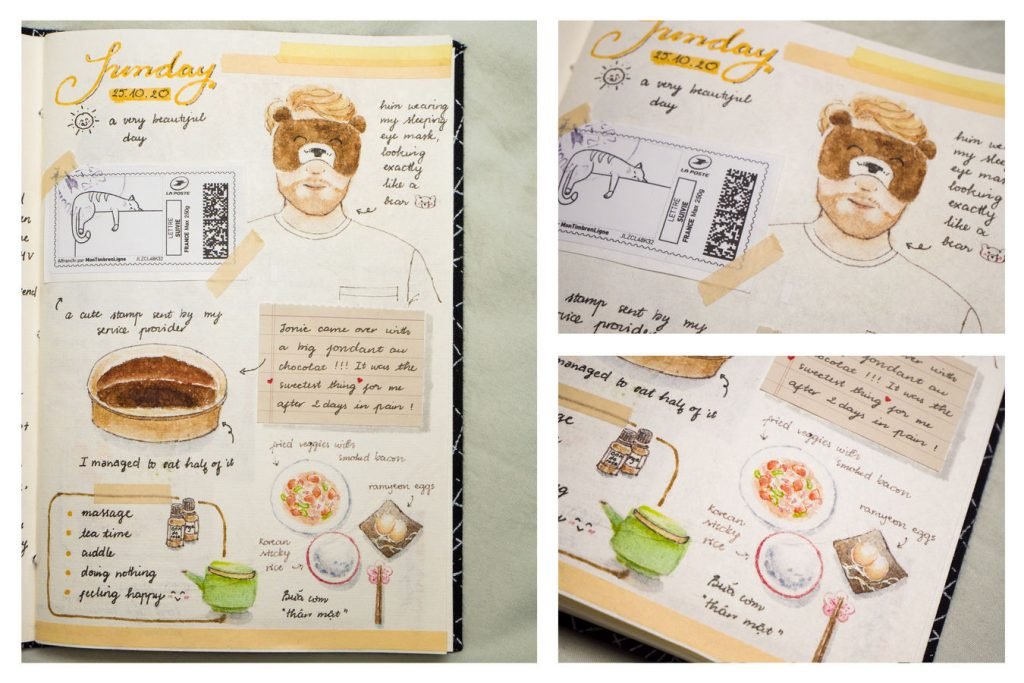 Sunday
25.10.20
a very beautiful
day
him wearing
my sleeping
eye mask,
looking
exactly
like a
bear
LA POSTE
LETTRE
SUIVIE
FRANCE Max 250g
Affranchi par MonTimbrenLigne
JLZCL4BK32
a cute stamp sent by my
service provider
Tonie came over with
a big fondant au
chocolat !!! It was the
sweetest thing for me
after 2 days in pain !
I managed to eat half of it
fried veggies with
smoked bacon
ramyeon eggs
Korean
sticky
rice
massage
tea time
cuddle
doing nothing
feeling happy
Bữa cơm
"thân mật"
Sunday
25.10.20
a very beautiful
day
him wea
my slee
eye mas
looking
exactly
like a
bear
LA POSTE
LETTRE
SUIVIE
FRANCE Max 250g
MonTimbrenLigne
JLZCL4BK32
stamp sent by my
service provider
fondant au
chocolat !!! It was the
sweetest thing for me
after 2 days in pain !
managed to eat half of it
fried veggies with
smoked bacon
ramyeon eggs
Korean
sticky
rice
Bữa cơm
"thân mật"